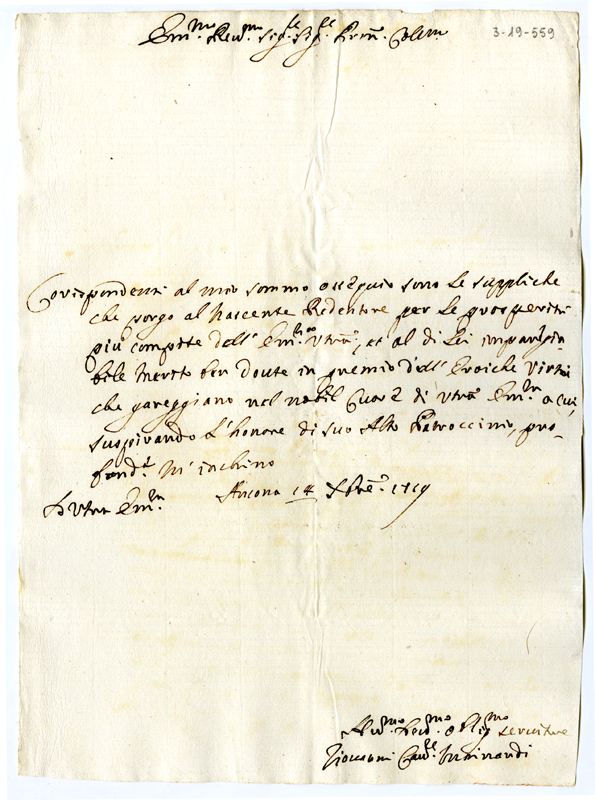 3-19-559
Em.mo Rev.mo Sig.re Sig.re Prōn. Colem.
Corispondenti al mio sommo ossequio sono le suppliche
che porgo al Nascente Redentore per le prosperità
più compite dell' Em.za Vtrā, et al di Lei imparegia-
bile Merito ben doute in premio dell' Eroiche Virtù
che gareggiano nel nobil Cuore di Vtrā Em.za a cui,
suspirando l'honore di suo Alto Patroccinio, pro-
fond.te M'inchino
D Vtra Em.za Ancona 14 Xbre. 1719
Hu.mo Dev.mo Oblig.mo servitore
Giovanni Cav.re